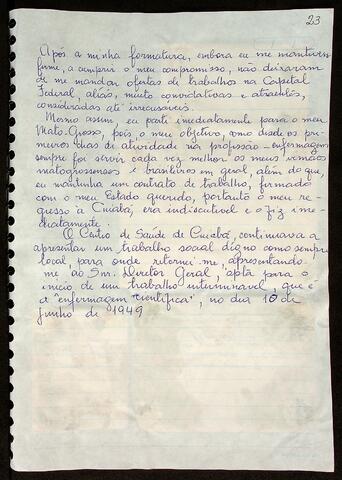 23
Após a minha formatura, embora eu me mantivesse
firme, a cumprir o meu compromisso, não deixaram
de me mandar ofertas de trabalhos na Capital
Federal, aliás, muito convidativas e atraentes,
consideradas até irrecusáveis.
Mesmo assim, eu parti imediatamente para o meu
Mato-Grosso, pois o meu objetivo, como desde os pri-
meiros dias de atividade na profissão - enfermagem
sempre foi servir cada vez melhor os meus irmãos
matogrossenses e brasileiros em geral, além do que,
eu mantinha um contrato de trabalho, firmado
com o meu Estado querido, portanto o meu re-
gresso à Cuiabá, era indiscutível e o fiz ime-
diatamente.
O Centro de Saúde de Cuiabá, continuava a
apresentar um trabalho social digno como sempre
local, para onde retornei-me, apresentando
me ao Snr. Diretor Geral, apta para o
início de um trabalho interminável, que é
a "enfermagem científica", no dia 10 de
junho de 1949